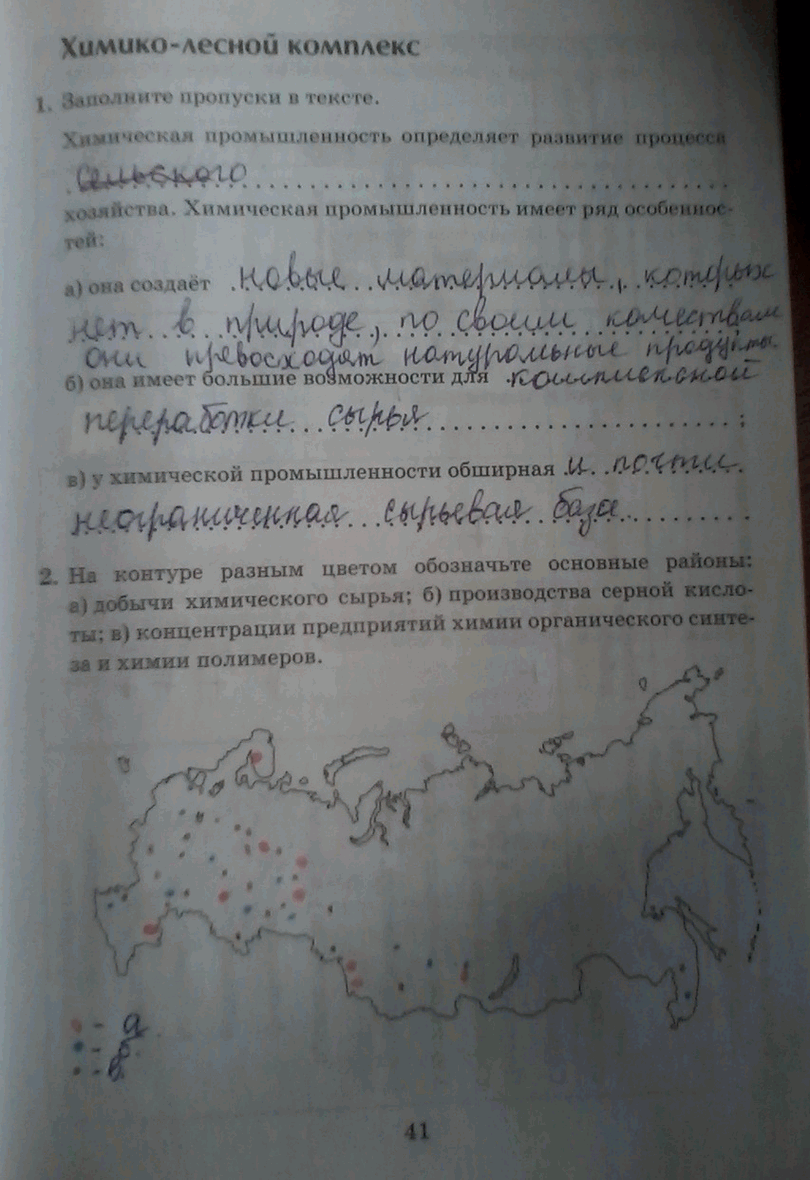 Химико-лесной комплекс
1. Заполните пропуски в тексте.
Химическая промышленность определяет развитие процесса
сельского
хозяйства. Химическая промышленность имеет ряд особеннос-
тей:
а) она создаёт новые материалы, которых
нет в природе, по своим качествам
они превосходят натуральные продукты.
б) она имеет большие возможности для комплексной
переработки сырья ;
в) у химической промышленности обширная и почти
неограниченная сырьевая база .
2. На контуре разным цветом обозначьте основные районы:
а) добычи химического сырья; б) производства серной кисло-
ты; в) концентрации предприятий химии органического синте-
за и химии полимеров.
- а
- б
- в
41